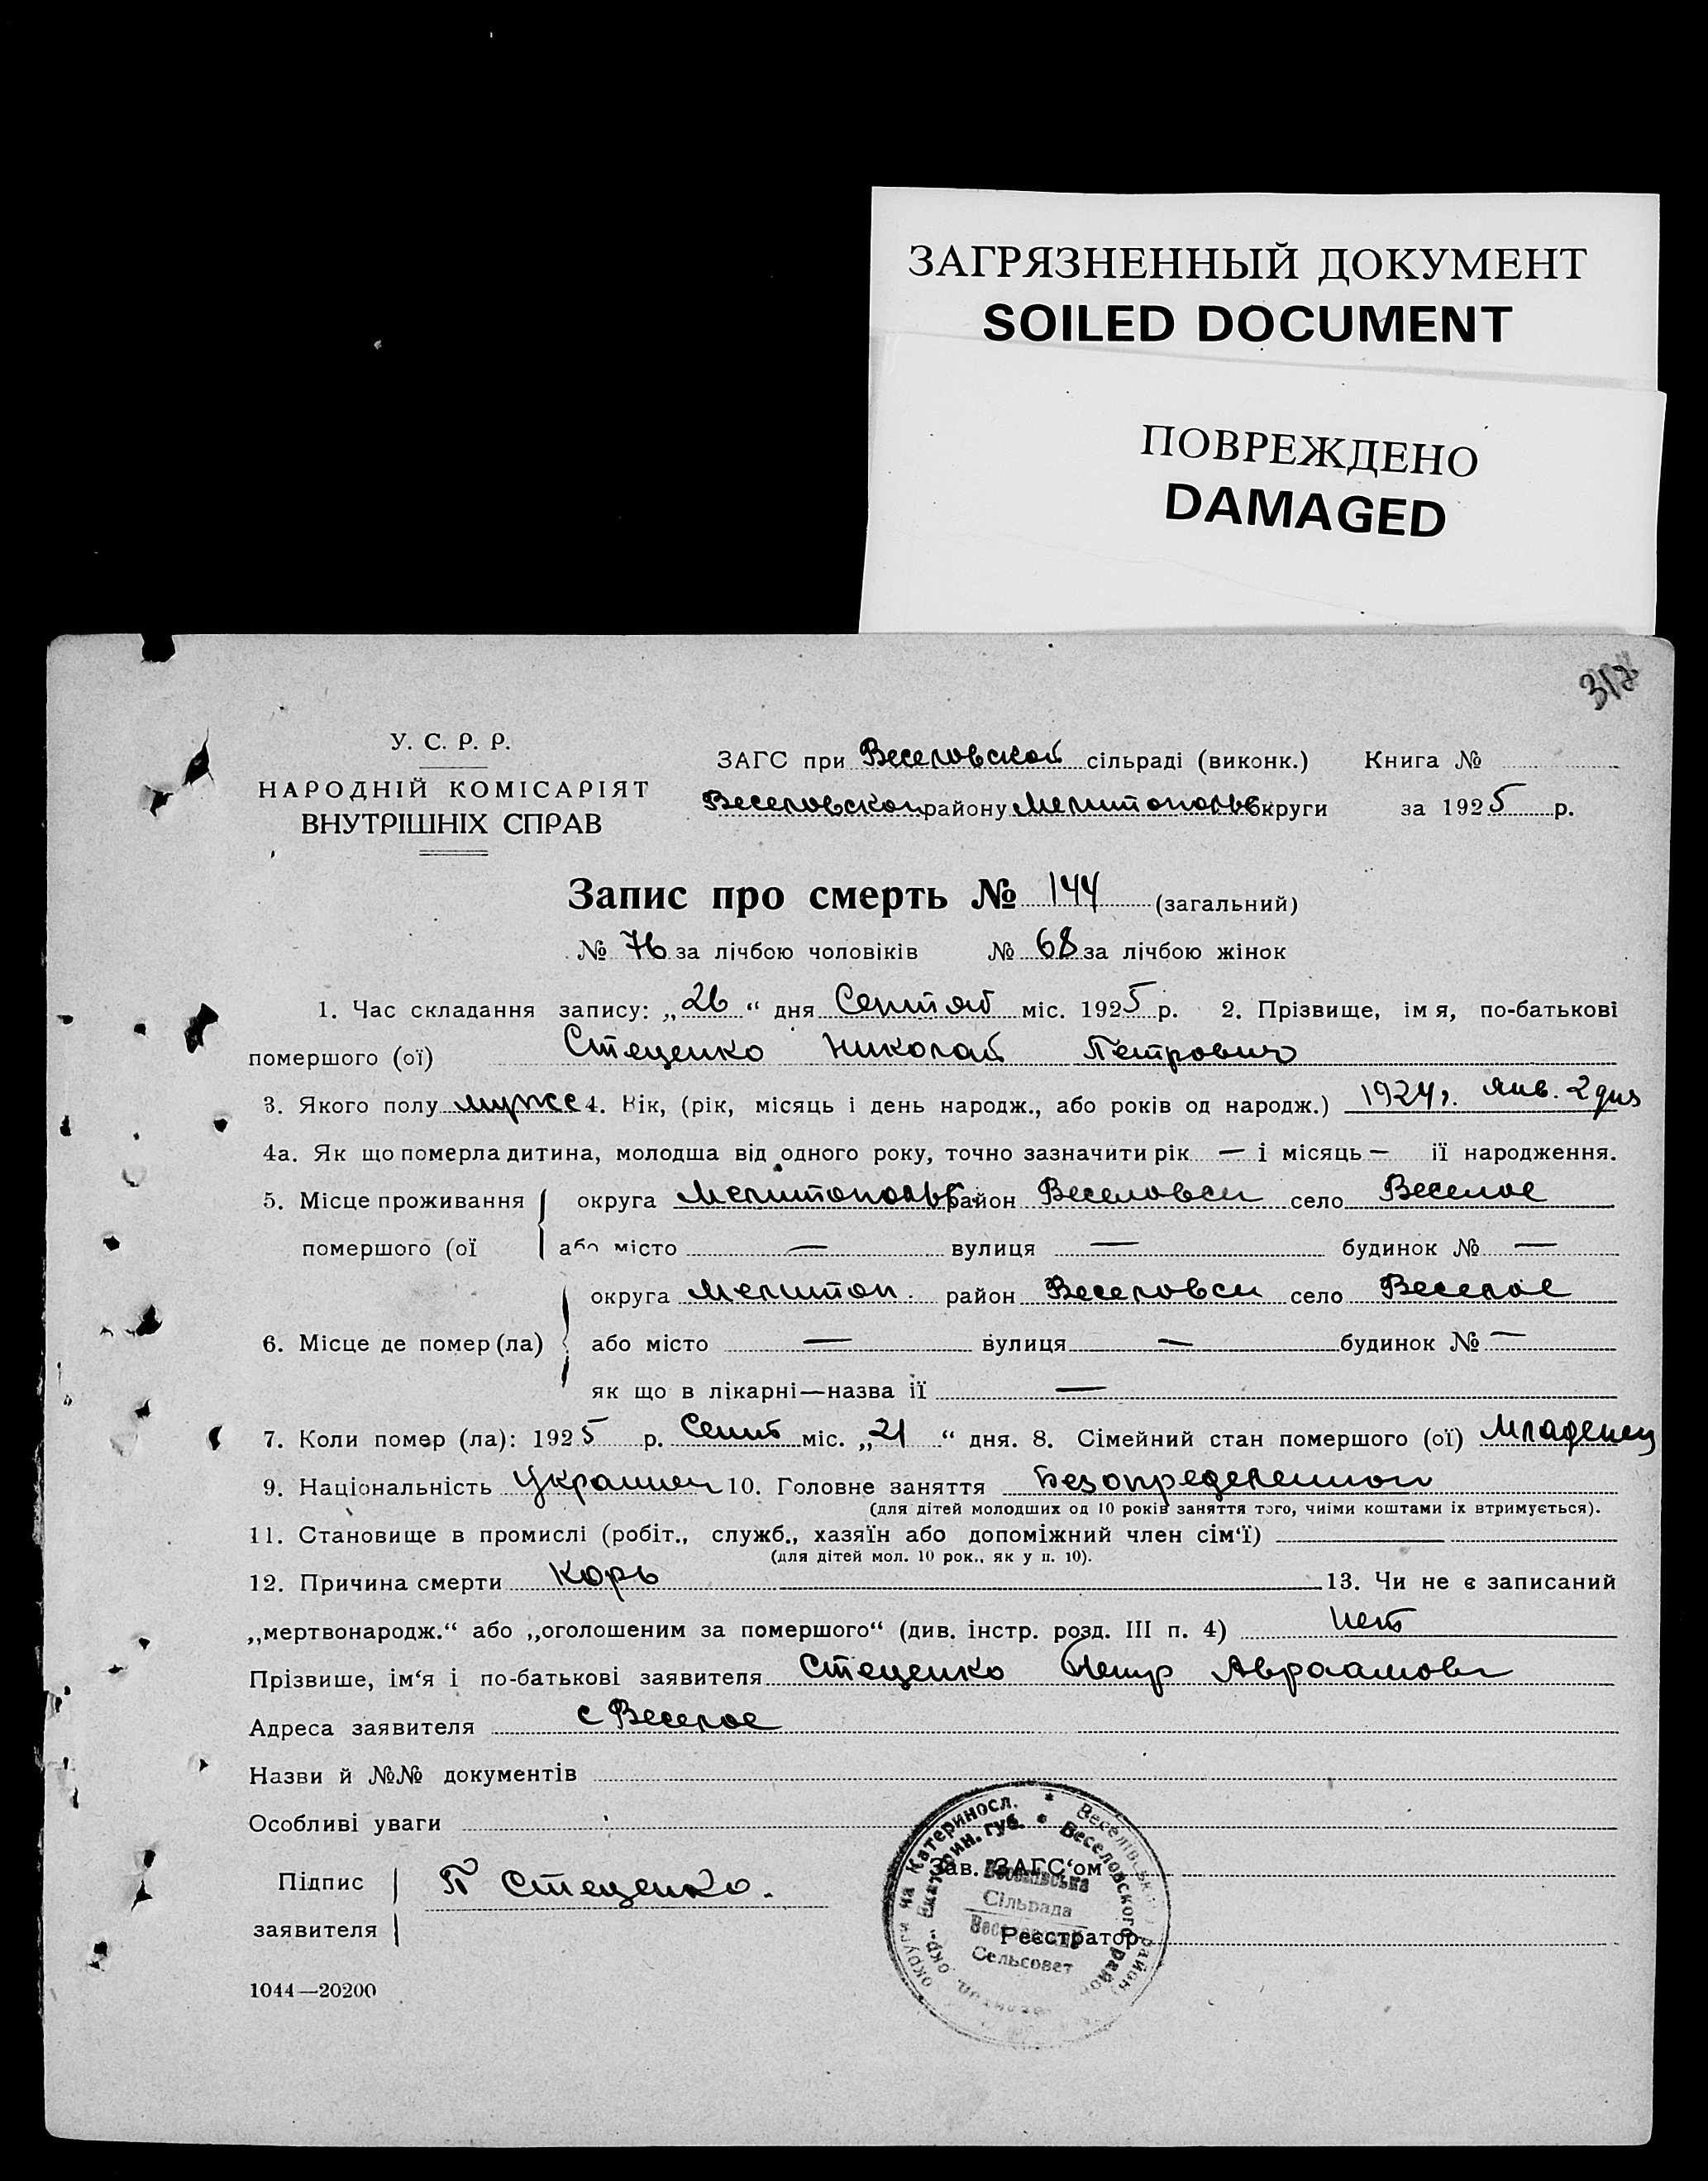 ЗАГРЯЗНЕННЫЙ ДОКУМЕНТ
SOILED DOCUMENT
ПОВРЕЖДЕНО
DAMAGED
У. С. Р. Р.
НАРОДНІЙ КОМІСАРІЯТ
ВНУТРІШНІХ СПРАВ
ЗАГС при Веселовской сільраді (виконк.) Книга №
Веселовскои району Мелитопольс округи за 1925 р.
Запис про смерть № 144 (загальний)
№ 76 за лічбою чоловіків № 68 за лічбою жінок
1. Час складання запису: „26“ дня Сентяб міс. 1925 р. 2. Прізвище, імя, по-батькові
помершого (ої) Стеценко Николай Петрович
3. Якого полу мужс 4. Вік, (рік, місяць і день народж., або років од народж.) 1924 г. янв. 2 дня
4а. Як що померла дитина, молодша від одного року, точно зазначити рік — і місяць — її народження.
5. Місце проживання округа Мелитопольс. район Веселовск село Веселое
помершого (ої або місто — вулиця — будинок № —
округа Мелитоп. район Веселовск село Веселое
6. Місце де помер (ла) або місто — вулиця — будинок № —
як що в лікарні—назва її —
7. Коли помер (ла): 1925 р. Сент міс. „21“ дня. 8. Сімейний стан помершого (ої) Младенец
9. Національність Украинец 10. Головне заняття Безопределенног
(для дітей молодших од 10 років заняття того, чиїми коштами їх втримується).
11. Становище в промислі (робіт., служб., хазяїн або допоміжний член сім‘ї)
(для дітей мол. 10 рок., як у п. 10).
12. Причина смерти Корь 13. Чи не є записаний
„мертвонародж.“ або „оголошеним за помершого“ (див. інстр. розд. III п. 4) нет
Прізвише, ім‘я і по-батькові заявителя Стеценко Петр Авраамов
Адреса заявителя с Веселое
Назви й №№ документів
Особливі уваги
Підпис П Стеценко. Зав. ЗАГС‘ом
заявителя Реєстратор
Сільрада
Сельсовет
1044—20200